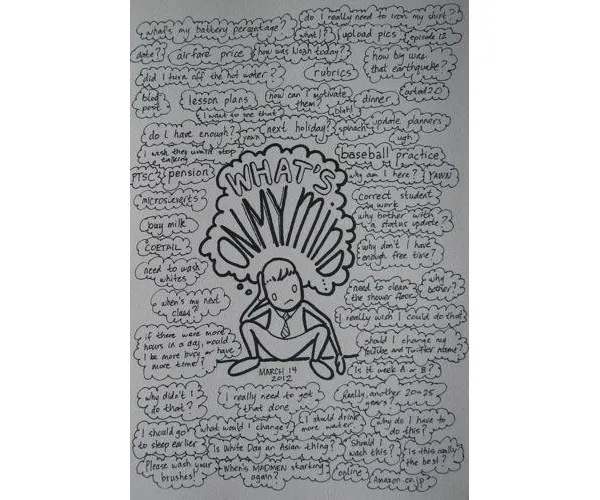 what's my battery percentage?
do I really need to iron my shirt?
what!?
upload pics
episode 12
date?
airfare price
how was Noah today?
how big was
that earthquake?
did I turn off the hot water?
rubrics
blog
post
lesson plans
how can I motivate
them?
dinner
arted20
I want to see that
blah!
do I have enough?
yawn
next holiday?
spinach
update planners
ugh
I wish they would stop
talking
baseball practice
PTSC?
pension
why am I here?
YAWN
WHAT'S
ON MY MIND
microsieverts
correct student
work
buy milk
why bother with
a status update?
COETAIL
why don't I have
enough free time?
need to wash
whites
need to clean
the shower floor
why
bother?
when's my next
class?
I really wish I could do that
if there were more
hours in a day, would
I be more busy or have
more time?
should I change my
YouTube and Twitter name?
Is it week A or B?
MARCH 14
2012
why didn't I
do that?
I really need to get
that done
Really, another 20~25
years?
I should go
to sleep earlier
what would I change?
I should drink
more water
why do I have to
do this?
Is White Day an Asian thing?
Should I
wash this?
Is this really
the best?
Please wash your
brushes!
When's MADMEN starting
again?
online
Amazon.co.jp